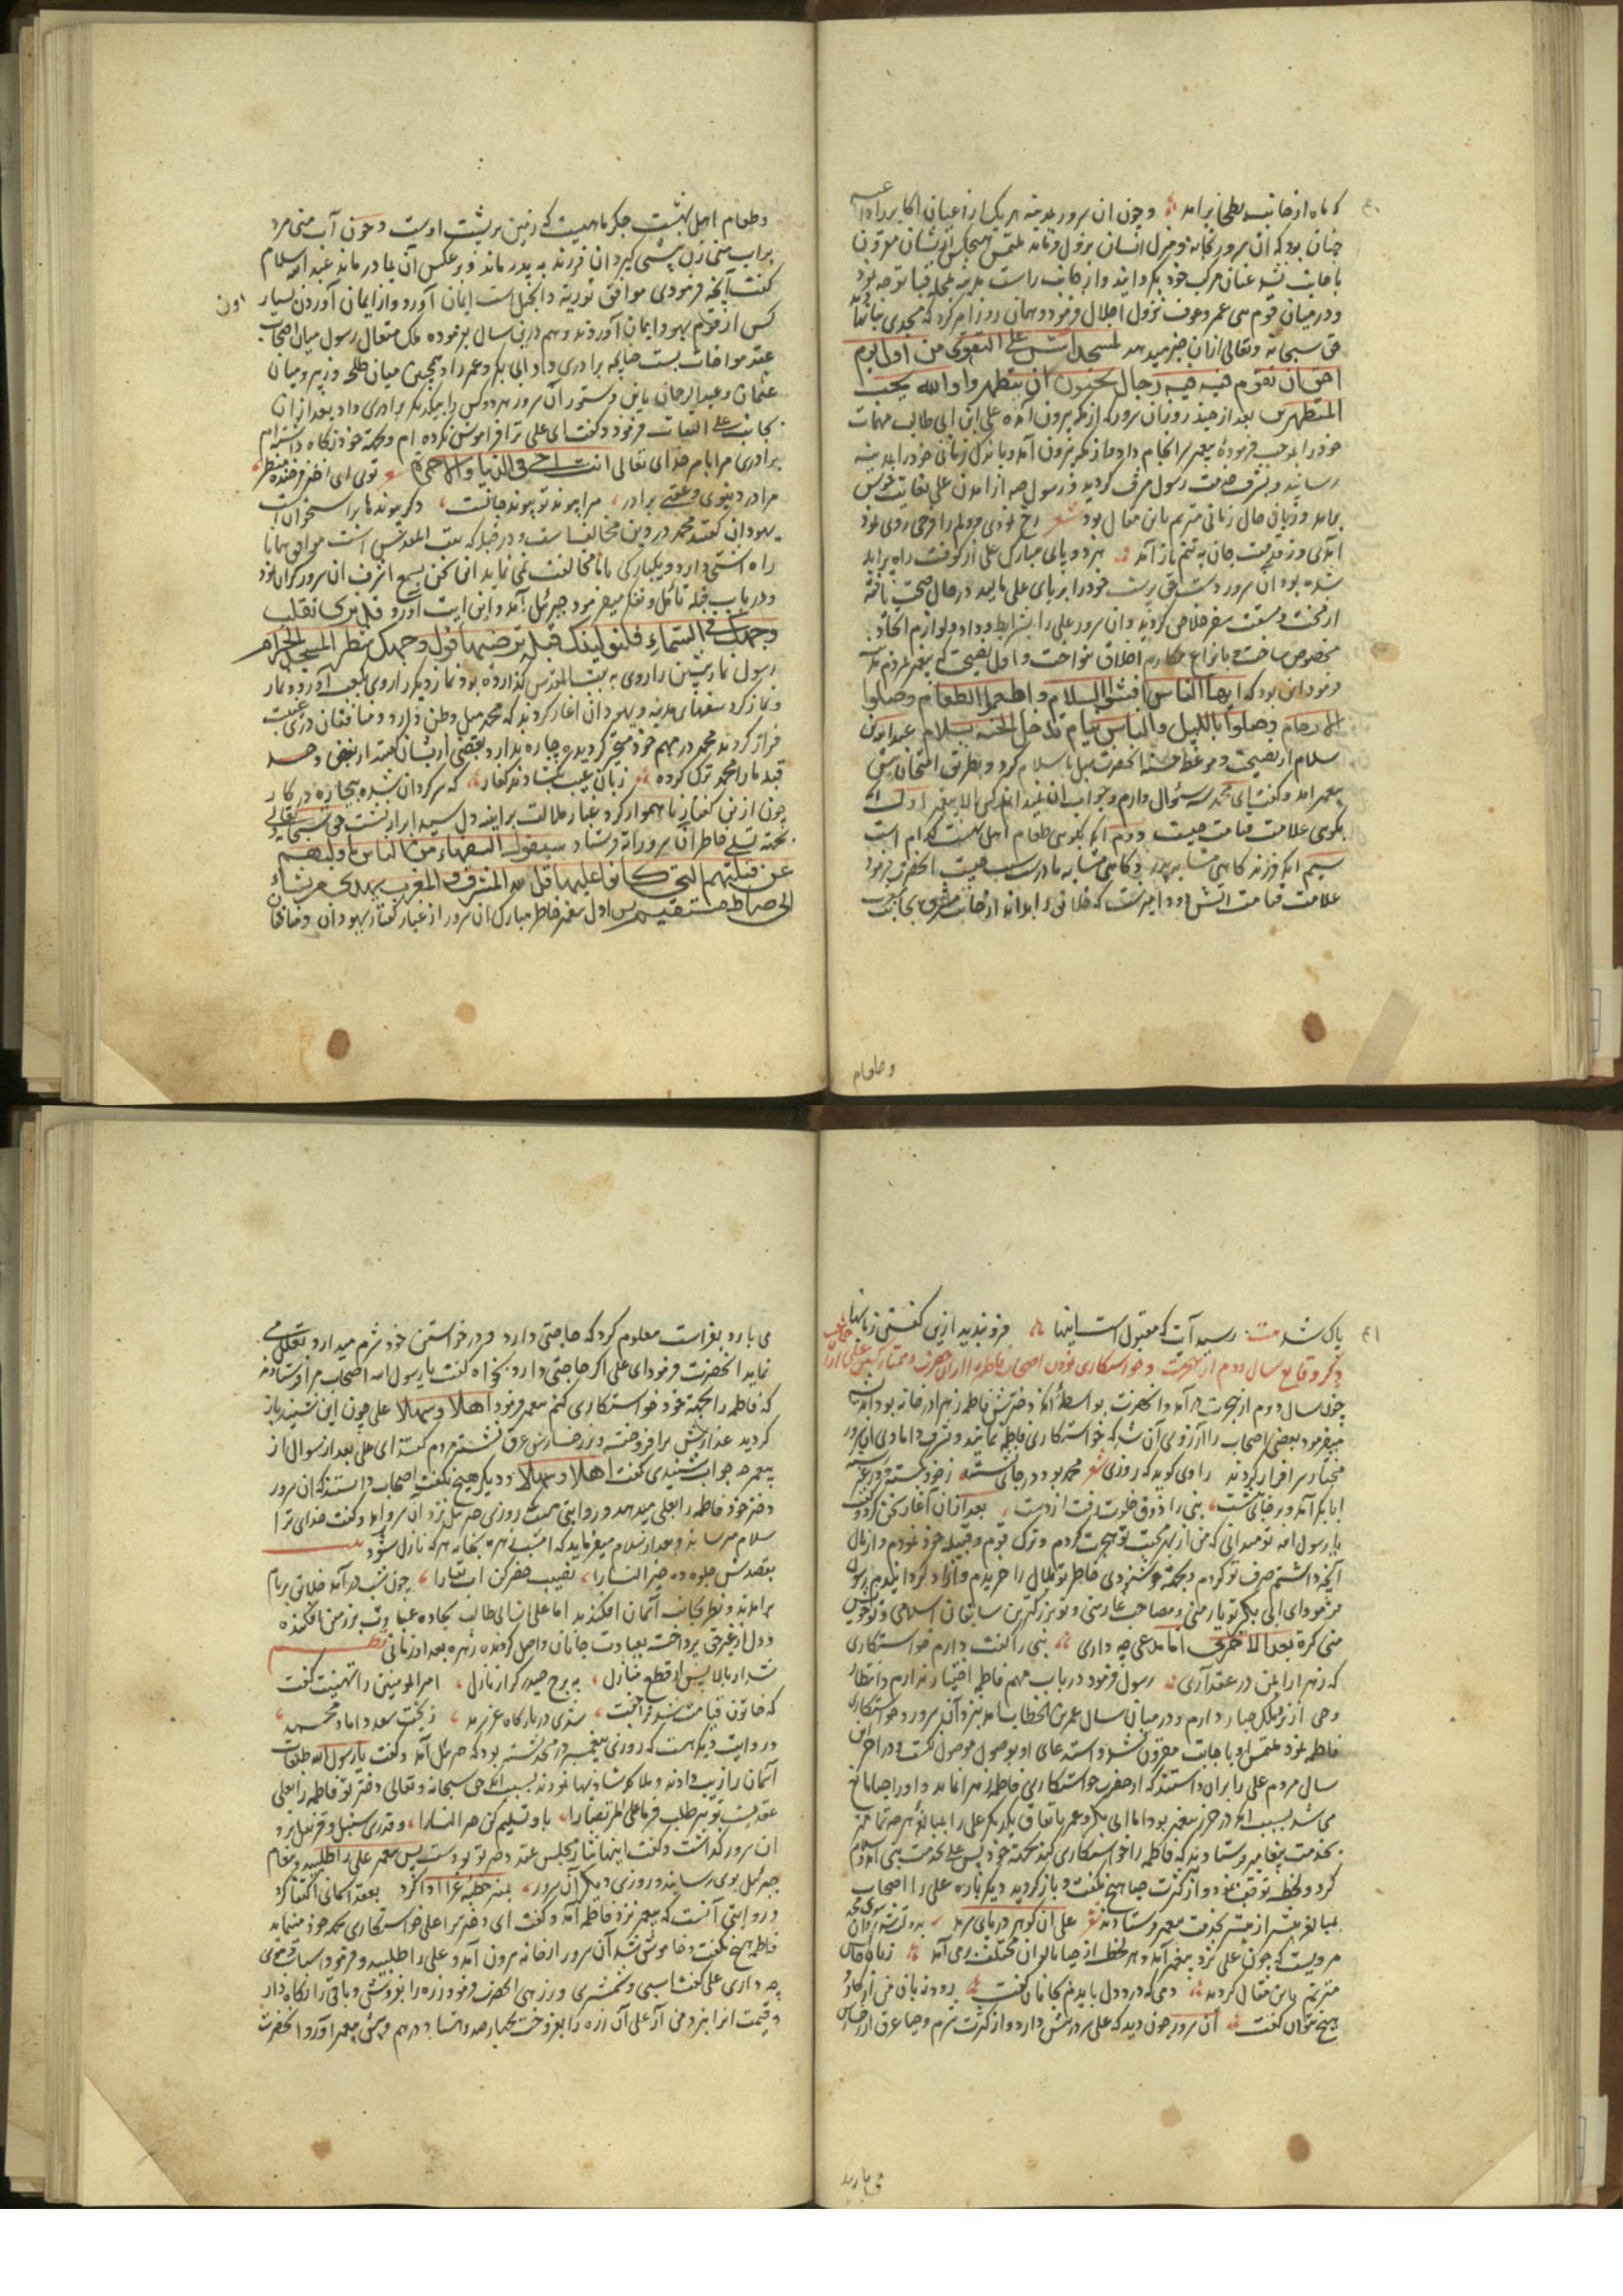 که ماه از جانب بطحا برآمد و چون آن سرور بمدینه
چنان بود که آن سرور بخانه و منزل ایشان نزول فرماید ملتمس هیچکس از ایشان مقرون
باجابت نشد عنان مرکب خود بگردانید و از جانب راست مدینه بمحله قبا توجه نمود
و در میان قوم بنی عمرو عوف نزول اجلال فرمود و همان روز امر کرد که مسجدی بنا نهاد
حق سبحانه وتعالی ازان خبر میدهد لمسجد اسس علی التقوی من اول یوم
احق ان تقوم فیه فیه رجال یحبون ان یتطهروا والله یحب
المتطهرین بعد از چند روز آن سرور که از مکه بیرون آمده علی ابن ابی طالب مهمات
خود را بموجب فرموده پیغمبر سرانجام داد و از مکه بیرون آمد و باندک زمانی خود را بمدینه
رسانید و بشرف خدمت رسول مشرف گردید و رسول از آمدن علی بغایت خوش
برآمد و زبان حال زمانی مترنم باین مقال بود شعر رخ نمودی و دلم را فرحی روی نمود
آمدی وز قدمت جان به تنم باز آمد هر دو پای مبارک علی از کوفت راه برآمده
شده بود آن سرور دست حق پرست خود را بر پای علی مالید در حال صحت یافته
از محنت و مشقت سفر خلاص گردید و آن سرور علی را بشرایط وداد و لوازم اتحاد
مخصوص ساخت و بانواع مکارم اخلاق بنواخت و اول نصیحت که پیغمبر مردم را
فرمود این بود که ایها الناس افشوا السلام و اطعموا الطعام و صلوا
الارحام وصلوا باللیل والناس نیام تدخل الجنة بسلام عبدالله بن
سلام از نصیحت و موعظت آنحضرت میل باسلام کرد و بطریق امتحان پیش
پیغمبر آمد و گفت ای محمد سه سؤال دارم و جواب آن نمیداند کسی الا پیغمبر اول آنکه
بگوی علامت قیامت چیست دوم آنکه بگوی طعام اهل بهشت کدام است
سیم آنکه فرزند گاهی مشابه پدر و گاهی مشابه مادرست سبب چیست آنحضرت فرمود
علامت قیامت آتش و دود است که خلایق را براند از جانب مشرق بجانب مغرب
وطعام
وطعام اهل بهشت جگر ماهیست که زمین بر پشت اوست و چون آب منی مرد
بر آب منی زن پیشی گیرد آن فرزند به پدر ماند و بر عکس آن بمادر ماند عبدالله سلام
گفت آنچه فرمودی موافق توریة و انجیل است ایمان آورد و از ایمان آوردن بسیار
کس از قوم یهود ایمان آوردند و هم درین سال بفرموده ملک متعال رسول میان اصحاب
عقد مواخات بست چنانچه برادری داد ابی بکر و عمر را و همچنین میان طلحه و زبیر و میان
عثمان و عبدالرحمان باین دستور آن سرور هر دو کس را بیکدیگر برادری داد بعد ازان
بجانب علی التفات فرمود و گفت ای علی ترا فراموش نکرده ام و بجهة خود نگاه داشته ام
برادری مرا بامر خدای تعالی انت اخی فی الدنیا والاخرة توی ای اختر فرخنده منظر
مرا در دنیوی و عقبی برادر مرا پیوند تو پیوند جانست دگر پیوندها بر استخوان است
یهودان گفتند محمد در دین مخالف ماست و در قبله که بیت المقدس است موافق مانا
راه آشتی دارد و یکبارگی با ما مخالفت نمی نماید این سخن بسمع اشرف آن سرور گران نمود
و در باب قبله تأمل و تفکر میفرمود جبرئیل آمد و این آیت آورد قد نری تقلب
وجهک فی السماء فلنولینک قبلة ترضیها فول وجهک شطر المسجد الحرام
رسول نماز پیشین را روی به بیت المقدس گذارده بود نماز دیگر را روی بکعبه آورد و نماز
و نماز کرد سفهای مدینه و یهودان آغاز کردند که محمد میل وطن دارد و منافقان درین غیبت
فراز کردند محمد در مهم خود متحیر گردیده چاره ندارد و بعضی از ایشان گفتند از بغض و حسد
قبله ما را محمد ترک کرده زبان عیب بگشادند کفار که سرگردان شده بیچاره در کار
چون ازین گفتار ناهموار گرد و غبار ملالت بر آینه دل سید ابرار نشست حق سبحانه تعالی
بجهة تسلی خاطر آن سرور آیه فرستاد سیقول السفهاء من الناس ما ولیهم
عن قبلتهم التی کانوا علیها قل لله المشرق و المغرب یهدی من یشاء
الی صراط مستقیم پس اول پیغمبر خاطر مبارک آن سرور از غبار گفتار یهودان و منافقان
پاک شد بیت رسید آیت که مقبول است اینها فرو بندید ازین گفتن زبانها
ذکر وقایع سال دوم از هجرت و خواستگاری نمودن اصحاب فاطمه را از آن حضرت
چون سال دوم از هجرت درآمد و آنحضرت بواسطه آنکه دخترش فاطمه زهرا در خانه بود
میفرمود بعضی اصحاب را آرزوی آن شد که خواستگاری فاطمه نمایند و بشرف دامادی آن سرور
مختار سرافراز گردند راوی گوید که روزی شعر محمد بود در جائی نشسته ز خود رسته و
ابابکر آمد و بر جای بنشست نبی را ذوق خلوت رفت از دست بعد ازان آغاز سخن کرد و گفت
یا رسول الله تو میدانی که من از بهر محبت تو هجرت کردم و ترک قوم و قبیله خود نمودم و از مال
آنچه داشتم صرف تو کردم و بجهة خشنودی خاطر تو بلال را خریدم و آزاد گردانیدم رسول
فرمود ای ابی بکر تو یار منی و مصاحب غار منی و تو بزرگترین سابقان اسلامی و تو خویش
منی کرة بعد الاخری اما مدعی چه داری نبی را گفت دارم خواستگاری
که زهرا را بمن در عقد آری رسول فرمود در باب مهم فاطمه اختیار ندارم و انتظار
وحی از نزد ملک جبار دارم و در میان سال عمر بن الخطاب آمد بنزد آن سرور و خواستگاری
فاطمه نمود ملتمس او باجابت مقرون نشد و استدعای او بوصول موصول نگشت و در آخر این
سال مردم علی را بران داشتند که از حضرت خواستگاری فاطمه زهرا نماید و او را حیا مانع
می شد بسبب آنکه در حرز پیغمبر بود اما ابی بکر و عمر باتفاق یکدیگر علی را بمبالغه هر چه تمامتر
بخدمت پیغامبر فرستادند که فاطمه را خواستگاری کند بجهة خود پس علی بخدمت نبی آمد و سلام
کرد و لحظه توقف نمود و از کثرت حیا هیچ نگفت و باز گردید دیگر باره علی را اصحاب
بمبالغه بیشتر از پیشتر بخدمت پیغمبر فرستادند شعر علی آن گوهر دریای سرمد
مرویست که چون علی نزد پیغمبر آمد و هر لحظه از حیا بالوان مختلف برمی آمد زبان حالش
مترنم باین مقال گردید دمی که درد دل بایدم بجانان گفت رود زبان من از کار و
هیچ نتوان گفت آن سرور چون دید که علی سر در پیش دارد و از کثرت شرم و حیا عرق از رخسارش
می بارد
می بارد بفراست معلوم کرد که حاجتی دارد و در خواستن خود شرم میدارد و تعلل می
نماید آنحضرت فرمود ای علی اگر حاجتی داری بخواه گفت یا رسول الله اصحاب مرا فرستادند
که فاطمه را بجهة خود خواستگاری کنم پیغمبر فرمود اهلا و سهلا علی چون این شنید باز
گردید عذارش برافروخته و بر رخسارش عرق نشسته مردم گفتند ای علی بعد از سوال از
پیغمبر چه جواب شنیدی گفت اهلا و سهلا و دیگر هیچ نگفت اصحاب دانستند که آن سرور
دختر خود فاطمه را بعلی میدهد و روایتی هست روزی جبرئیل نزد آن سرور آمد و گفت خدای ترا
سلام میرساند و بعد از سلام میفرماید که امشب زهره بخانه هر که نازل شود
بقصدش جلوه ده خیر النسا را نصیب حضر کن آب بقا را چون شب درآمد خلایق بر بام
برآمدند و نظر بجانب آسمان افکندند اما علی ابی طالب سجاده عبادت بر زمین افکنده
و دل از غیر حق پرداخته بعبادت جانان واصل گردیده زهره بعد از زمانی نظم
شد از بالا پس از قطع منازل به برج حیدر کرار نازل امیرالمومنین را تهنیت گفت
که خاتون قیامت شد ترا جفت شدی در بارگاه عز سرمد ز بخت سعد داماد محمد
و در روایت دیگر هست که روزی پیغمبر در مسجد نشسته بود که جبرئیل آمد و گفت یا رسول الله طبقات
آسمان را زیب دادند و ملائکه شادیها نمودند بسبب آنکه حق سبحانه وتعالی دختر تو فاطمه را بعلی
عقد بست تو نیز طلب فرما علی المرتضی را باو تسلیم کن خیر النسا را و قدری سنبل و قرنفل نزد
آن سرور گذاشت و گفت اینها نثار مجلس عقد دختر تو بودست پس پیغمبر علی را طلبید و پیغام
جبرئیل بوی رسانید و روزی دیگر آن سرور بمنبر خطبه غرا ادا کرد بعقد آسمانی اکتفا کرد
و روایتی آنست که پیغمبر نزد فاطمه آمد و گفت ای دختر ترا علی خواستگاری بجهة خود مینماید
فاطمه هیچ نگفت و خاموش شد آن سرور از خانه بیرون آمد و علی را طلبید و فرمود اسباب عروسی
چه داری علی گفت اسبی و شمشیری و زرهی آنحضرت فرمود زره را بفروش و باقی را نگاه دار
و قیمت آنرا نزد من آر علی آن زره را بفروخت بچهارصد و هشتاد درهم و پیش پیغمبر آورد آنحضرت